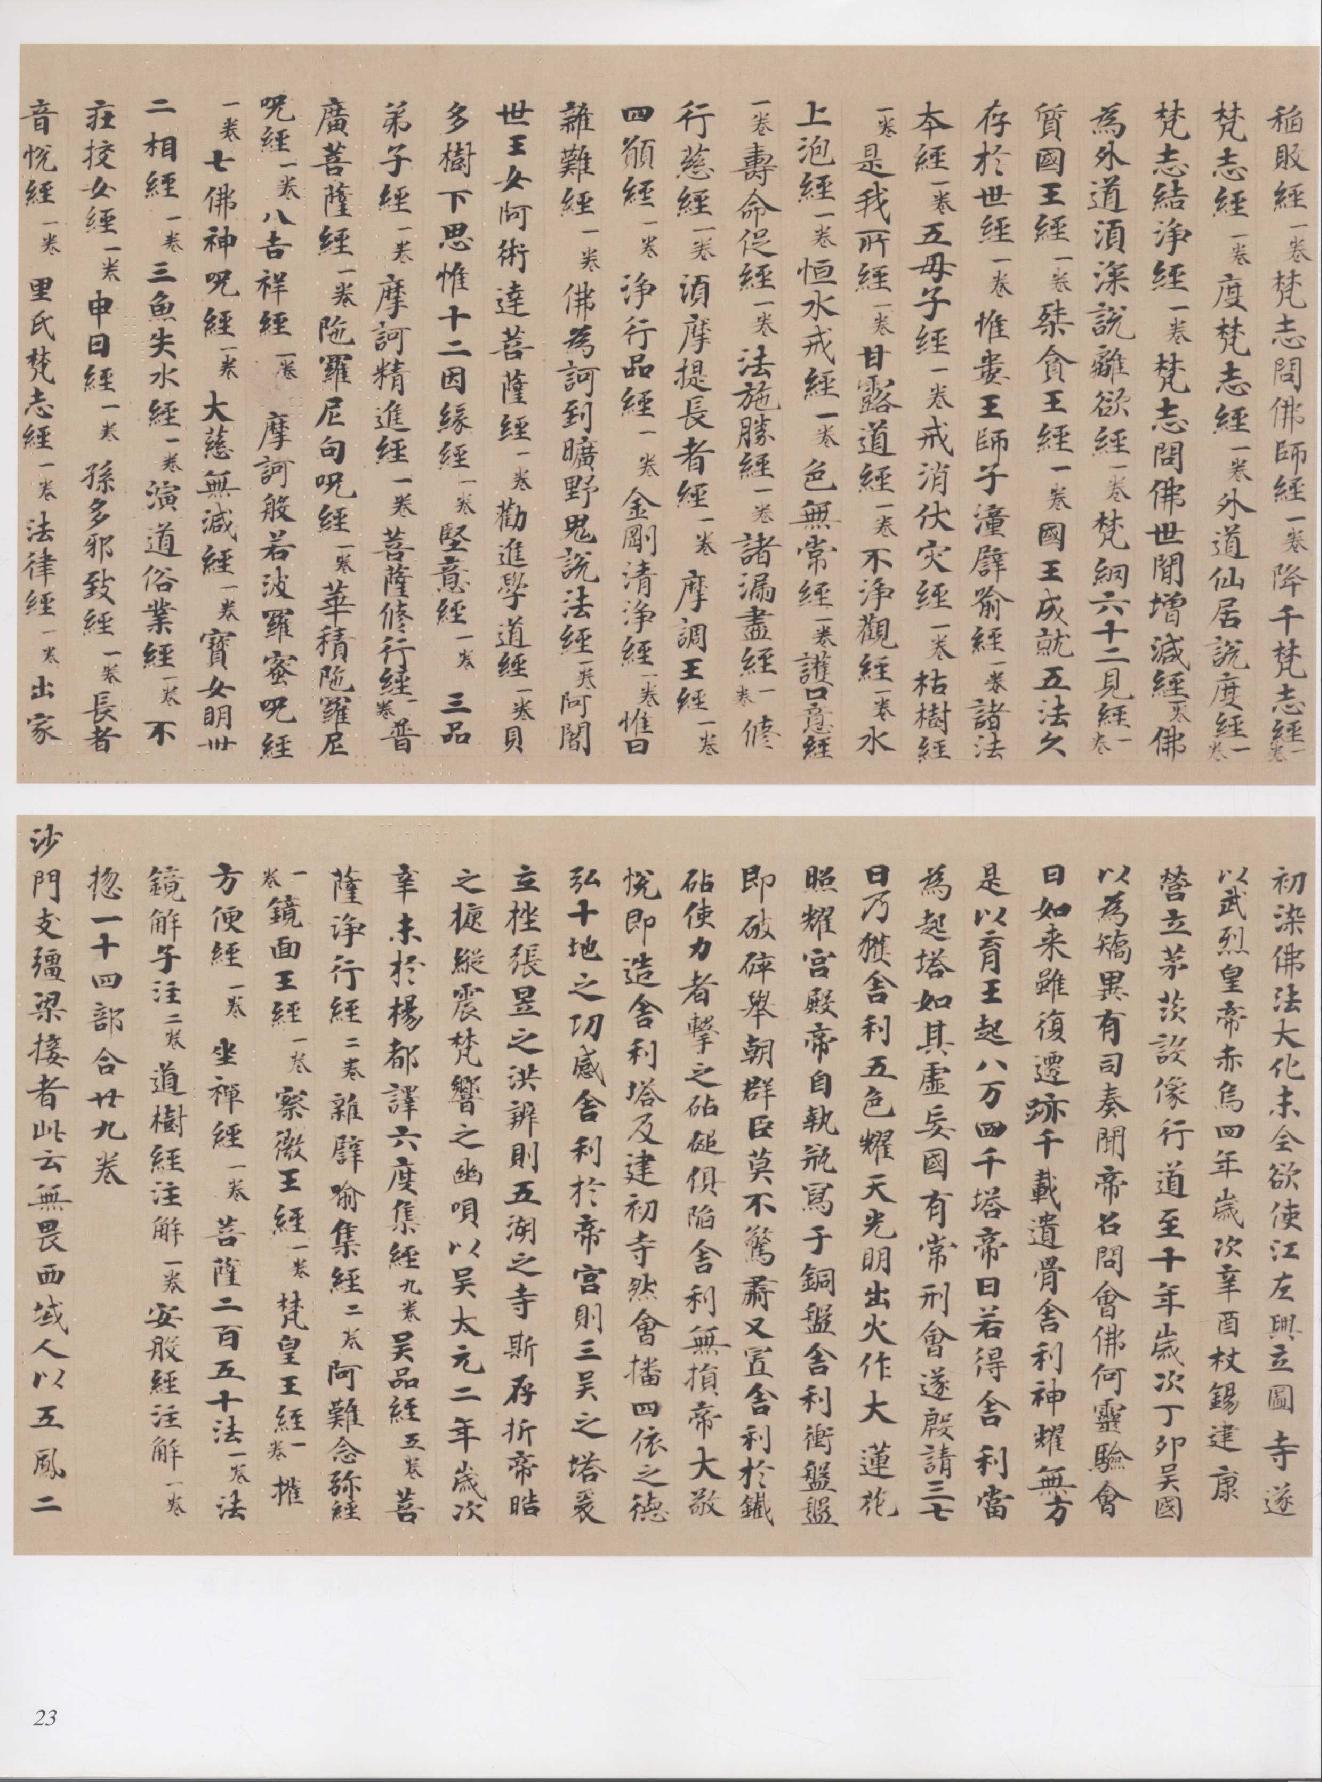 稻䏔經一卷梵志問佛師經一卷降千梵志經一卷
梵志經一卷度梵志經一卷外道仙居說度經一卷
梵志結淨經一卷梵志問佛世間增減經一卷佛
為外道湏深說離欲經一卷梵網六十二見經一卷
質國王經一卷桀貪王經一卷國王成就五法久
存於世經一卷惟婁王師子湩譬喻經一卷諸法
本經一卷五母子經一卷戒消伏灾經一卷枯樹經
一卷是我所經一卷甘露道經一卷不淨觀經一卷水
上泡經一卷恒水戒經一卷色無常經一卷護口意經
一卷壽命促經一卷法施勝經一卷諸漏盡經一卷修
行慈經一卷湏摩提長者經一卷摩調王經一卷
四願經一卷淨行品經一卷金剛清淨經一卷惟日
雜難經一卷佛為訶到曠野鬼說法經一卷阿闍
世王女阿術達菩薩經一卷勸進學道經一卷貝
多樹下思惟十二因緣經一卷堅意經一卷三品
弟子經一卷摩訶精進經一卷菩薩修行經一卷普
廣菩薩經一卷陁羅尼句呪經一卷華積陁羅尼
呪經一卷八吉祥經一卷摩訶般若波羅蜜呪經
一卷七佛神呪經一卷大慈無減經一卷寶女明卅
二相經一卷三魚失水經一卷演道俗業經一卷不
莊挍女經一卷申日經一卷孫多邪致經一卷長者
音悅經一卷里氏梵志經一卷法律經一卷出家
初染佛法大化未全欲使江左興立圖寺遂
以武烈皇帝赤烏四年歲次辛酉杖錫建康
營立茅茨設像行道至十年歲次丁卯吳國
以為矯異有司奏聞帝召問會佛何靈驗會
曰如来雖復遷跡千載遺骨舍利神耀無方
是以育王起八万四千塔帝曰若得舍利當
為起塔如其虛妄國有常刑會遂殷請三七
日乃獲舍利五色耀天光明出火作大蓮花
照耀宮殿帝自執瓶寫于銅盤舍利衝盤盤
即破碎舉朝群臣莫不驚肅又置舍利於鐵
砧使力者擊之砧鎚俱陷舍利無損帝大敬
悅即造舍利塔及建初寺然會播四依之德
弘十地之功感舍利於帝宮則三吳之塔爰
立挫張昱之洪辨則五湖之寺斯存折帝晧
之㨾縱震梵響之幽唄以吳太元二年歲次
辛未於楊都譯六度集經九卷吳品經五卷菩
薩淨行經二卷雜譬喻集經二卷阿難念弥經
一卷鏡面王經一卷察微王經一卷梵皇王經一卷攉
方便經一卷坐禪經一卷菩薩二百五十法一卷法
鏡解子注二卷道樹經注解一卷安般經注解一卷
揔一十四部合廿九卷
沙門支彊梁接者此云無畏西域人以五鳳二
23